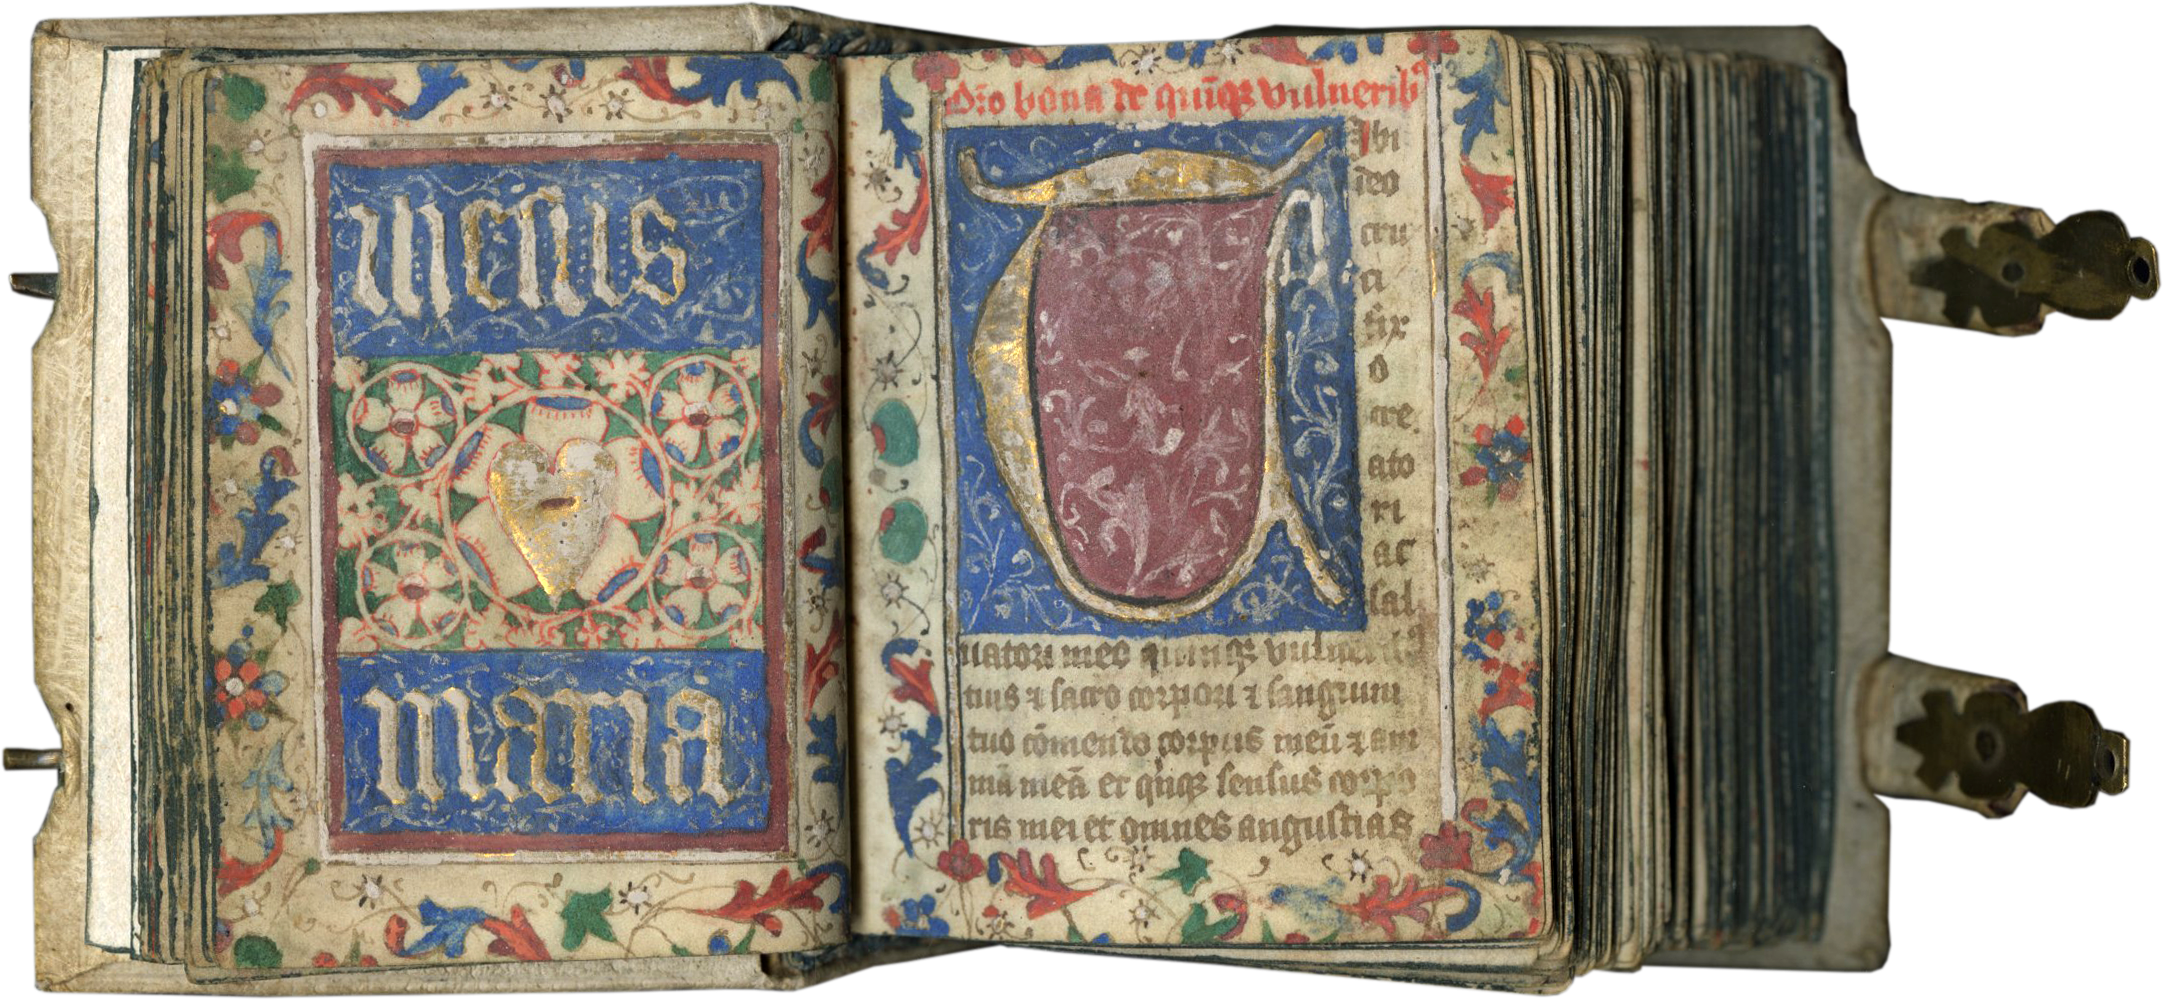 ihesus
maria
Or̄o bona de quīqꝫ vulneribꝰ
Tibi
deo
cru
ci
fix
o
cre
ato
ri
ac
sal
uatori meo quinqꝫ vulneribꝰ
tuis ⁊ sacro corpori ⁊ sanguini
tuo cōmendo corpus meū ⁊ ani
mā meā et qīqꝫ sensus corpo
ris mei et omnes angustias